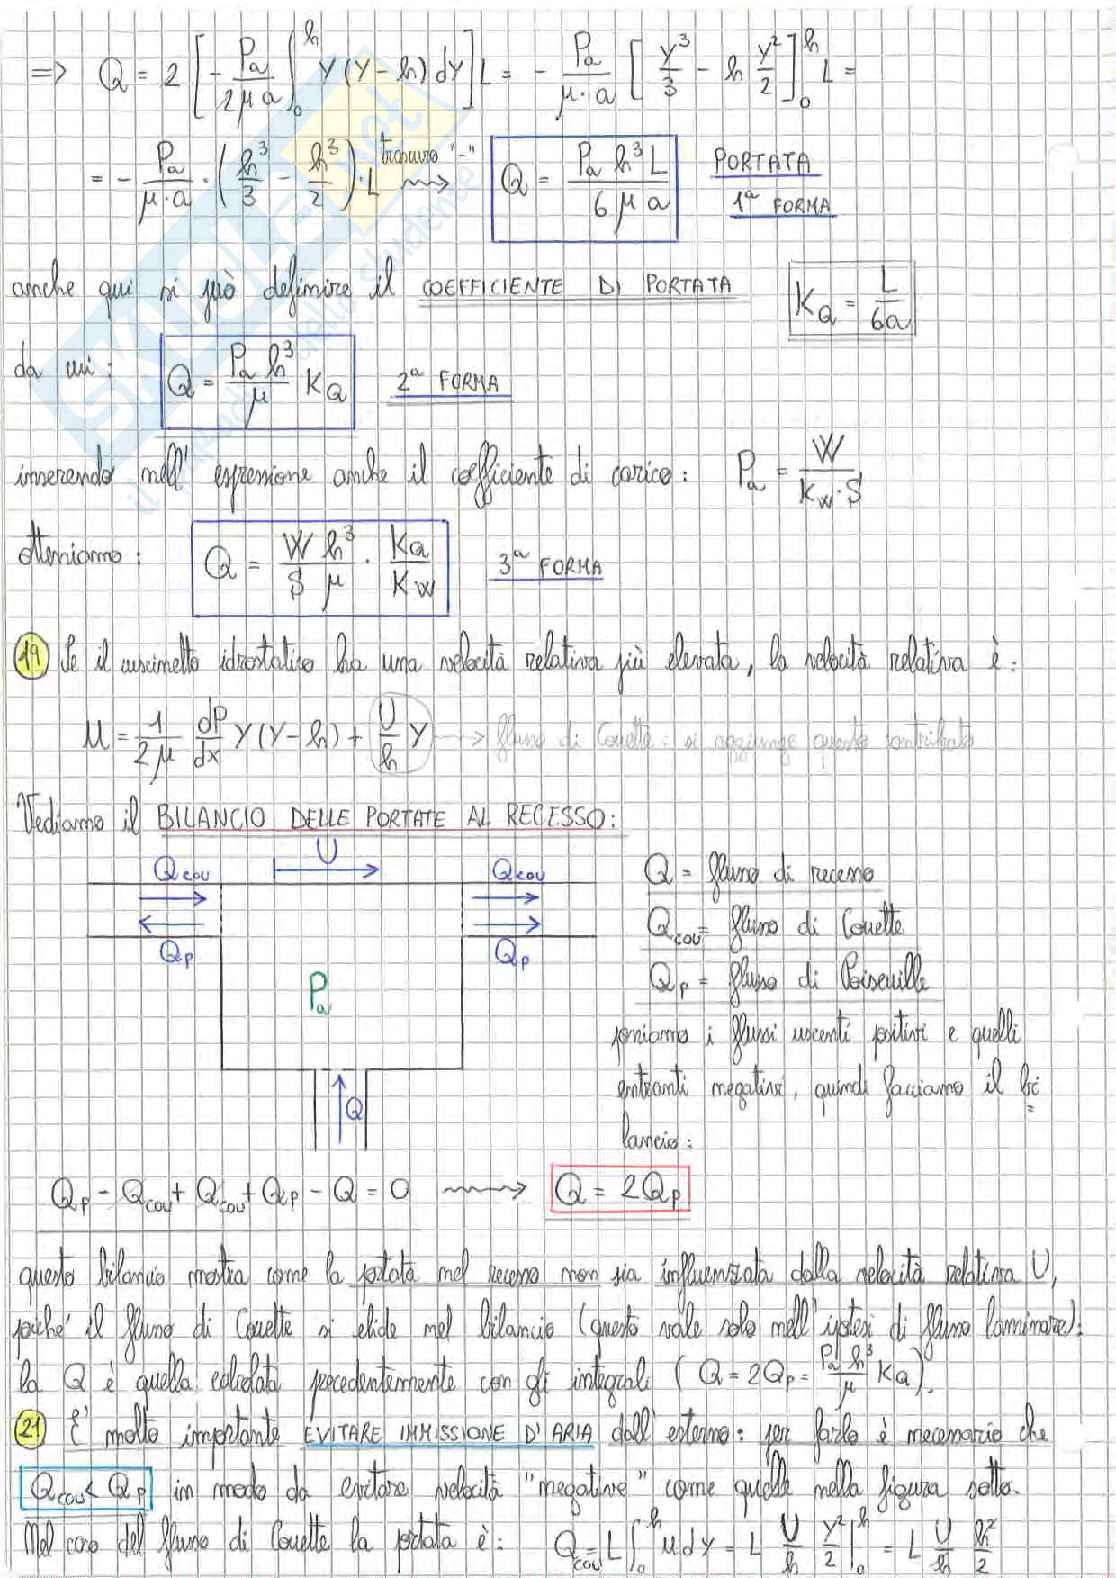 => Q = 2 [ - Pa/(2μa) ∫₀ʰ Y(Y-h)dY ] L = - Pa/(μ·a) [ Y³/3 - h Y²/2 ]₀ʰ L =
= - Pa/(μ·a) · ( h³/3 - h³/2 ) · L trascuro "-" ⟿ Q = Pa h³ L/(6 μ a) PORTATA
1ª FORMA
anche qui si può definire il COEFFICIENTE DI PORTATA K_Q = L/6a
da cui: Q = Pa h³/μ K_Q 2ª FORMA
inserendo nell'espressione anche il coefficiente di carico: Pa = W/(K_W·S)
otteniamo: Q = W h³/(S μ) · K_Q/K_W 3ª FORMA
19 Se il cuscinetto idrostatico ha una velocità relativa più elevata, la velocità relativa è:
u = 1/(2μ) dP/dx Y(Y-h) + U/h Y ⟿ flusso di Couette: si aggiunge questo contributo
Vediamo il BILANCIO DELLE PORTATE AL RECESSO:
Qcou U Qcou Q = flusso di recesso
Qp Qp Qcou = flusso di Couette
Pa Qp = flusso di Poiseuille
poniamo i flussi uscenti positivi e quelli
entranti negativi, quindi facciamo il bi
Q lancio:
Qp - Qcou + Qcou + Qp - Q = 0 ⟿ Q = 2Qp
questo bilancio mostra come la portata nel recesso non sia influenzata dalla velocità relativa U,
poiché il flusso di Couette si elide nel bilancio (questo vale solo nell'ipotesi di flusso laminare):
la Q è quella calcolata precedentemente con gli integrali ( Q = 2Qp = Pa h³/μ K_Q ).
21 E' molto importante EVITARE IMMISSIONE D'ARIA dall'esterno: per farlo è necessario che
Qcou < Qp in modo da evitare velocità "negative" come quelle nella figura sotto.
Nel caso del flusso di Couette la portata è: Qcou = L ∫₀ʰ u dY = L U/h Y²/2 |₀ʰ = L U/h h²/2